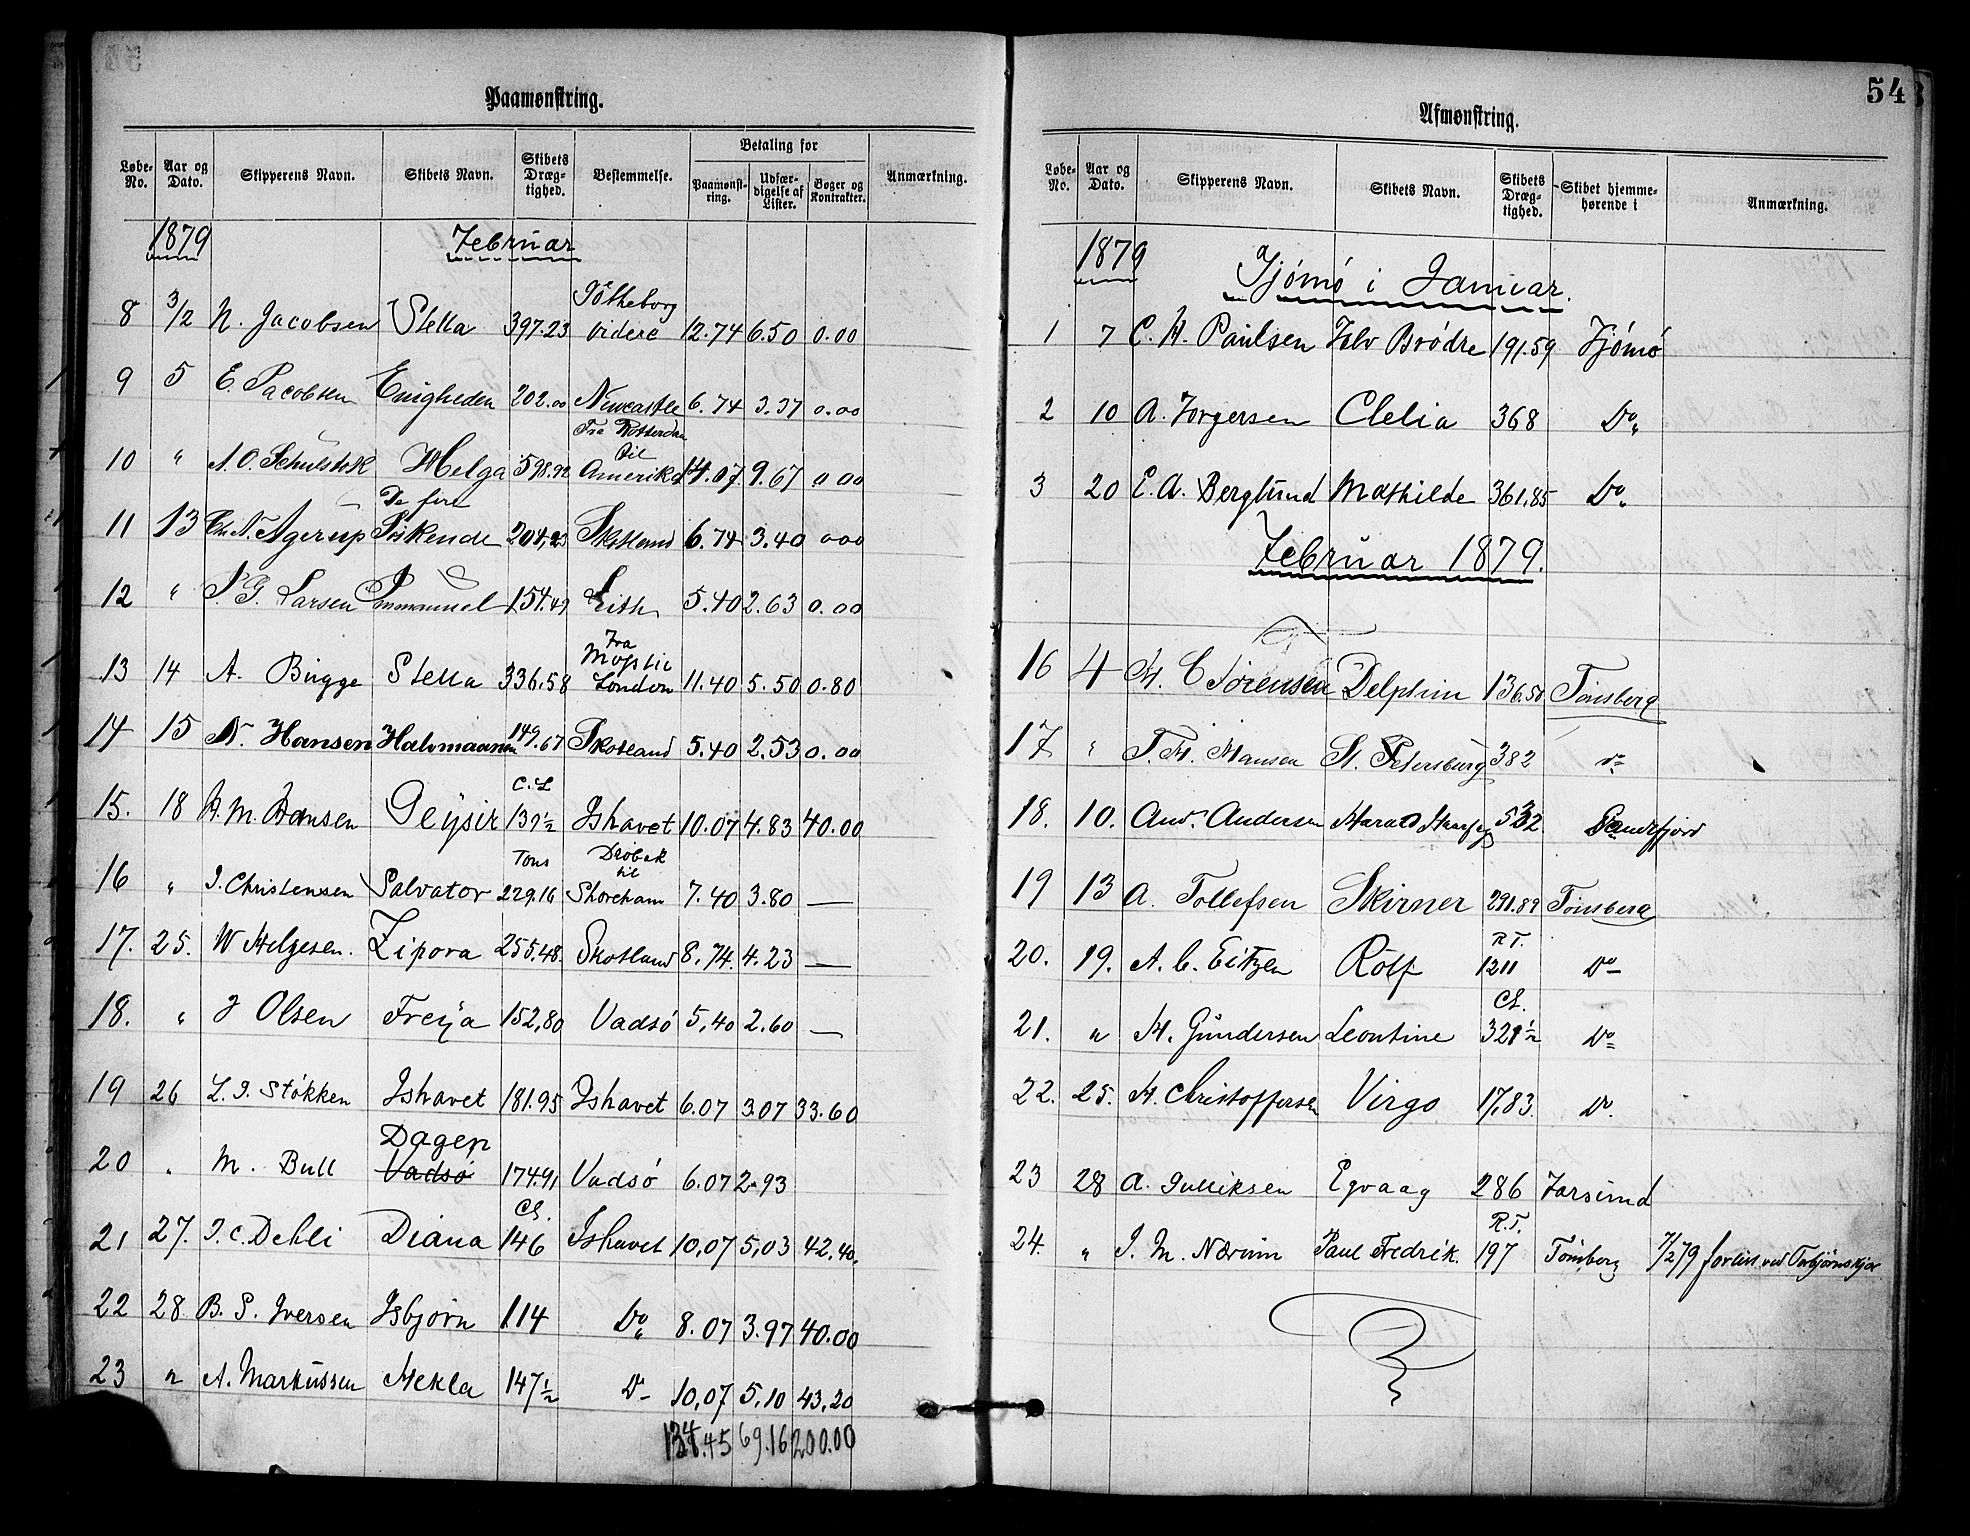 Paamønstring.
Løbe-No. Aar og Dato. Skipperens Navn. Skibets Navn. Skibets Dræg-tighed. Bestemmelse. Betaling for Paamønst-ring. Udfær-digelse af Lister. Bøger og Kontrakter. Anmærkning.
1879 Februar
8 3/2 N. Jacobsen Stella 397.23 Götheborg videre 12.74 6.50 0.00
9 5 E. Jacobsen Enigheden 202.00 Newcastle 6.74 3.37 0.00
10 " A. O. Schulstok Helga 598.92 Fra Rotterdam til Amerika 14.07 9.67 0 00
11 13 Chr. N. Agerup De fire Søskende 204,23 Skotland 6.74 3.40 000
12 " P. G. Larsen Immanuel 154.49 Leith 5.40 2.63 0.00
13 14 A. Bugge Stella 336.58 Fra London 11.40 5.50 0.80
14 15 N. Hansen Halvmaanen 149.67 Skotland 5.40 2.53 0.00
15. 18 H. M. Hansen Geysir C.L 139½ Ishavet 10.07 4.83 40.00
16 " I. Christensen Salvator Tons 229.16 Drøbak til Shoreham 7.40 3.80 —
17. 25. W Helgesen. Zipora 255.48. Skotland 8,74. 4.23 —
18. " J Olsen Freya 152,80 Vadsö 5,40 2.60 —
19 26 L. I. Støkken Ishavet 181.95 Ishavet 6.07 3.07 33.60
20 " M. Bull Dagen Vadsö 174.91 Vadsö 6.07 2.93
21 27. I. C. Dehli Diana CL. 146 Ishavet 10,07 5,03 42,40.
22 28 B. S. Iversen Isbjørn 114 Do 8.07 3.97 40.00
23 " A. Markussen Hekla 147½ Do 10,07 5,10 43,20
134.45 69.16 200.00
54
Afmønstring.
Løbe-No. Aar og Dato. Skipperens Navn. Skibets Navn. Skibets Dræg-tighed. Skibet hjemme-hørende i Anmærkning.
1879
Tjömö i Januar.
1 7 C. H. Paulsen Tolv Brödre 191.59 Tjömö
2 10 A. Torgersen Clelia 368 Do
3 20 E. A. Berglund Mathilde 361,85 Do
Februar 1879.
16 4 H. C Sörensen Delphin 136.50 Tönsberg
17 " T. H. Hansen St. Petersburg 382 do
18. 10. And. Andersen Harald Haarfag 532 Sandefjord
19 13 A. Tollefsen Skirner 291.89 Tönsberg
20. 19. A. C. Eitzen Rolf R T. 1211 Do
21. " H. Gundersen Leontine CL. 321½ Do
22. 25. H. Christoffersen Virgo 17,83. Do.
23 28 A. Gulliksen Egvaag 286 Farsund
24. " I. M. Nærum Paul Fredrik. R.T. 197 Tönsberg 7/2 79 forlist ved Torbjørnskjær